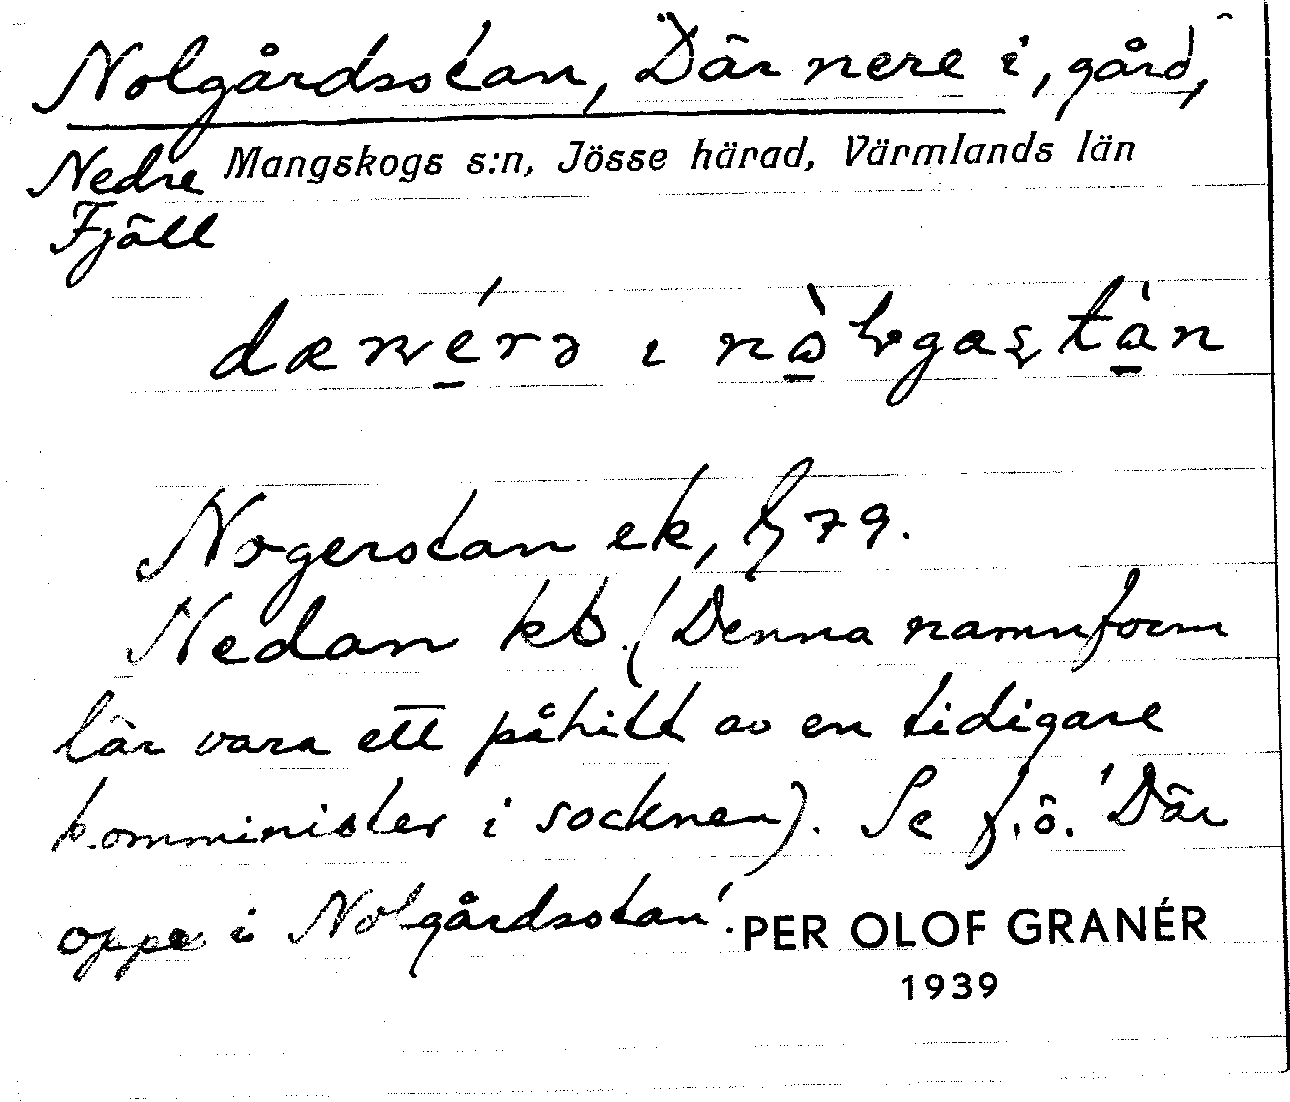 Nolgårdsstan, Där nere i, gård,
Mangskogs s:n, Jösse härad, Värmlands län
Nedre
Fjäll
Nogerstan ek, 79.
Nedan kb. (Denna namnform
lär vara ett påhitt av en tidigare
komminister i socknen). Se f.ö. 'Där
oppe i Nolgårdsstan'.
PER OLOF GRANÉR
1939